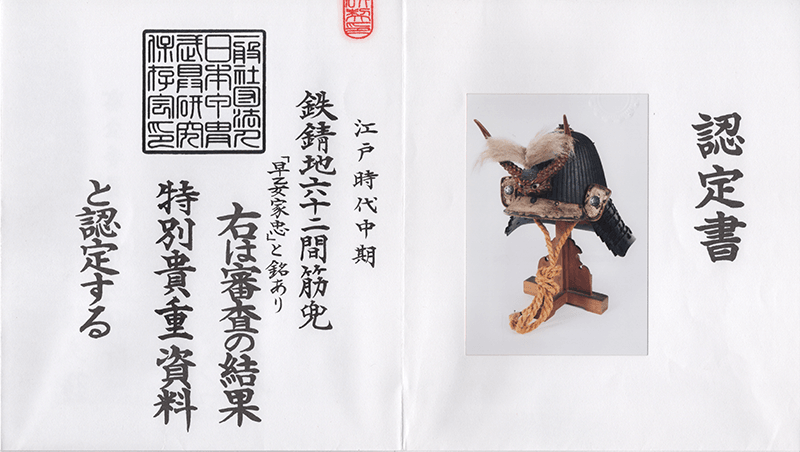 認定書
江戸時代中期
鉄錆地六十二間筋兜
「早乙女家忠」と銘あり
右は審査の結果
特別貴重資料
と認定する
一般社団法人
日本甲冑
武具研究
保存会印